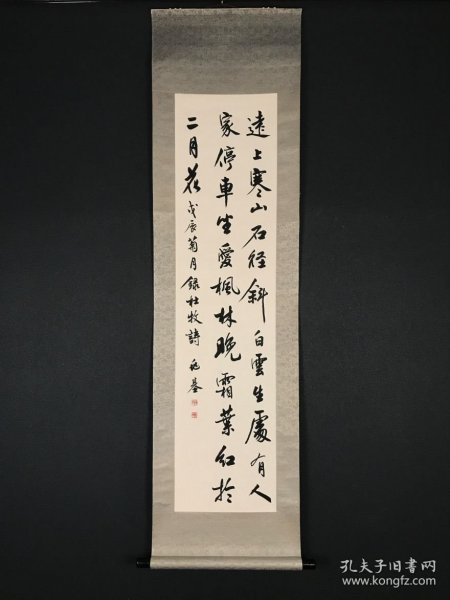 遠上寒山石径斜白雲生處有人
家停車坐愛楓林晚霜葉紅於
二月花 戊辰菊月錄杜牧詩
孔夫子旧书网
www.kongfz.com